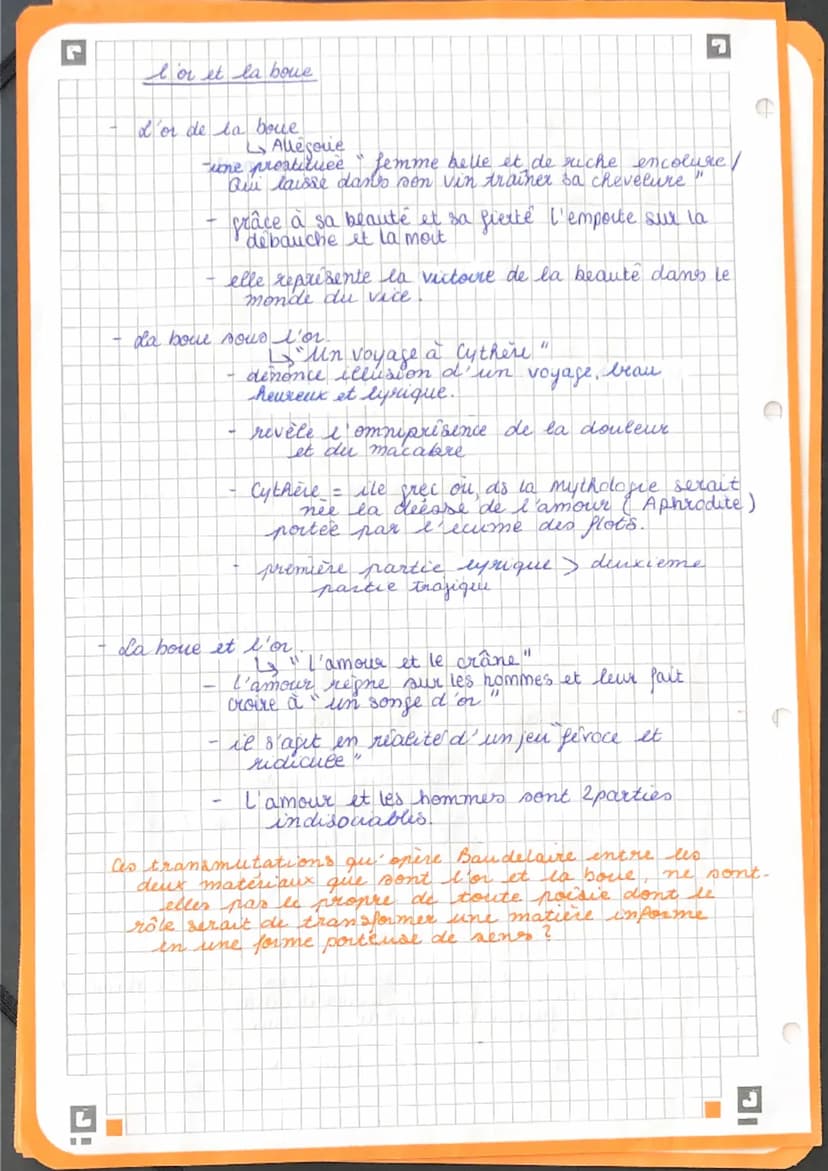 l'or et la boue
- L'or de la boue
↳ Allégorie
- une prostituée " femme belle et de riche encolure /
Qui laisse dans son vin traîner sa chevelure "
- grâce à sa beauté et sa fierté l'emporte sur la
débauche et la mort
- elle représente la victoire de la beauté dans le
monde du vice.
- La boue sous l'or.
↳ "Un voyage à Cythère"
- dénonce illusion d'un voyage, beau
heureux et lyrique.
- revèle l'omniprésence de la douleur
et du macabre
- Cythère = île grec où, ds la mythologie serait
née la déesse de l'amour (Aphrodite)
portée par l'écume des flots.
- première partie lyrique > deuxieme
partie tragique
- La boue et l'or.
↳ "l'amour et le crâne"
- l'amour règne sur les hommes et leur fait
croire à "un songe d'or"
- il s'agit en réalité d'un jeu "féroce et
ridicule"
- L'amour et les hommes sont 2 parties
indisouables.
Ces transmutations qu'opère Baudelaire entre les
deux matériaux que sont l'or et la boue, ne sont-
elles pas le propre de toute poésie dont le
rôle serait de transformer une matière informe
en une forme porteuse de sens ?